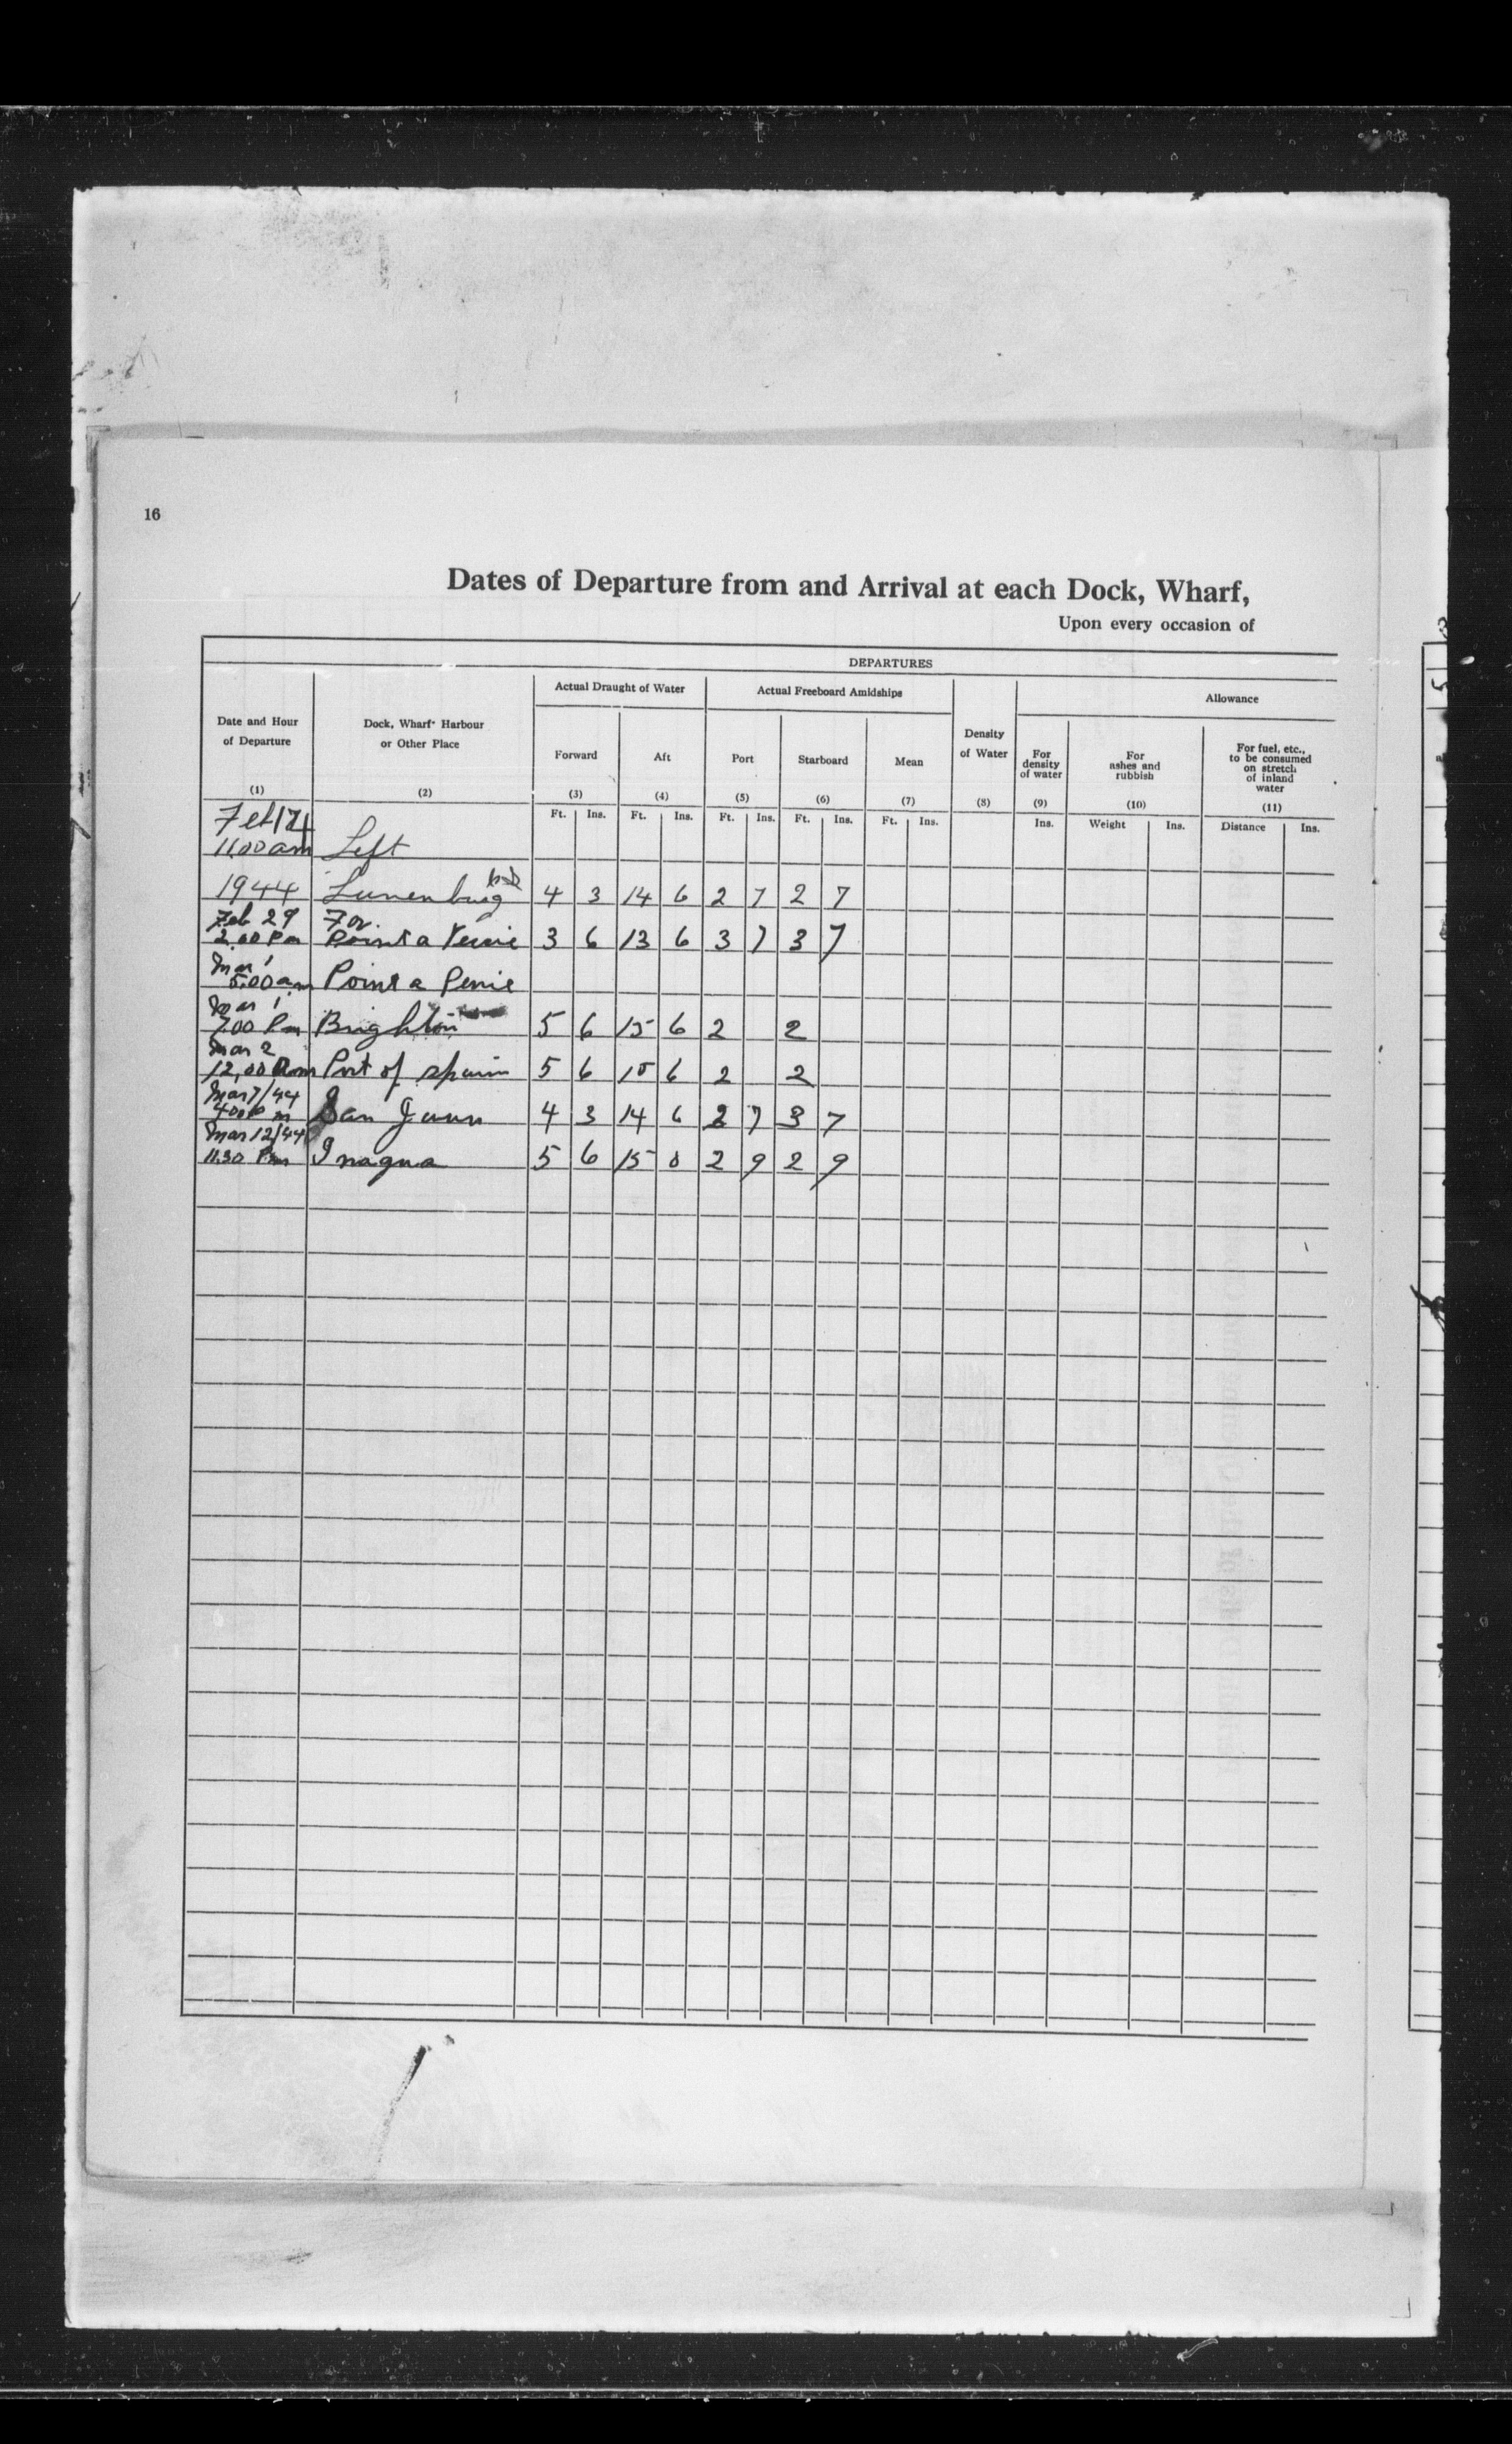 16
Dates of Departure from and Arrival at each Dock, Wharf,
Upon every occasion of
DEPARTURES
Date and Hour of Departure
Dock, Wharf, Harbour or Other Place
Actual Draught of Water
Actual Freeboard Amidships
Density of Water
Allowance
Forward
Aft
Port
Starboard
Mean
For density of water
For ashes and rubbish
For fuel, etc., to be consumed on stretch of inland water
(1) (2) (3) (4) (5) (6) (7) (8) (9) (10) (11)
Ft. Ins. Ft. Ins. Ft. Ins. Ft. Ins. Ft. Ins. Ins. Weight Ins. Distance Ins.
11.00 am Left
1944 Lunenburg 4 3 14 6 2 7 2 7
Feb 29 For
2.00 Pm Point a 3 6 13 6 3 7 3 7
Mar 1
5.00 am Point a
Mar 1
7.00 Pm Brighton 5 6 15 6 2 2
Mar 2
12,00 Port of spain 5 6 15 6 2 2
Mar 7/44
4.00 P m San Juan 4 3 14 6 7 3 7
Mar 12/44
11.30 Pm Inagua 5 6 15 0 2 9 2 9